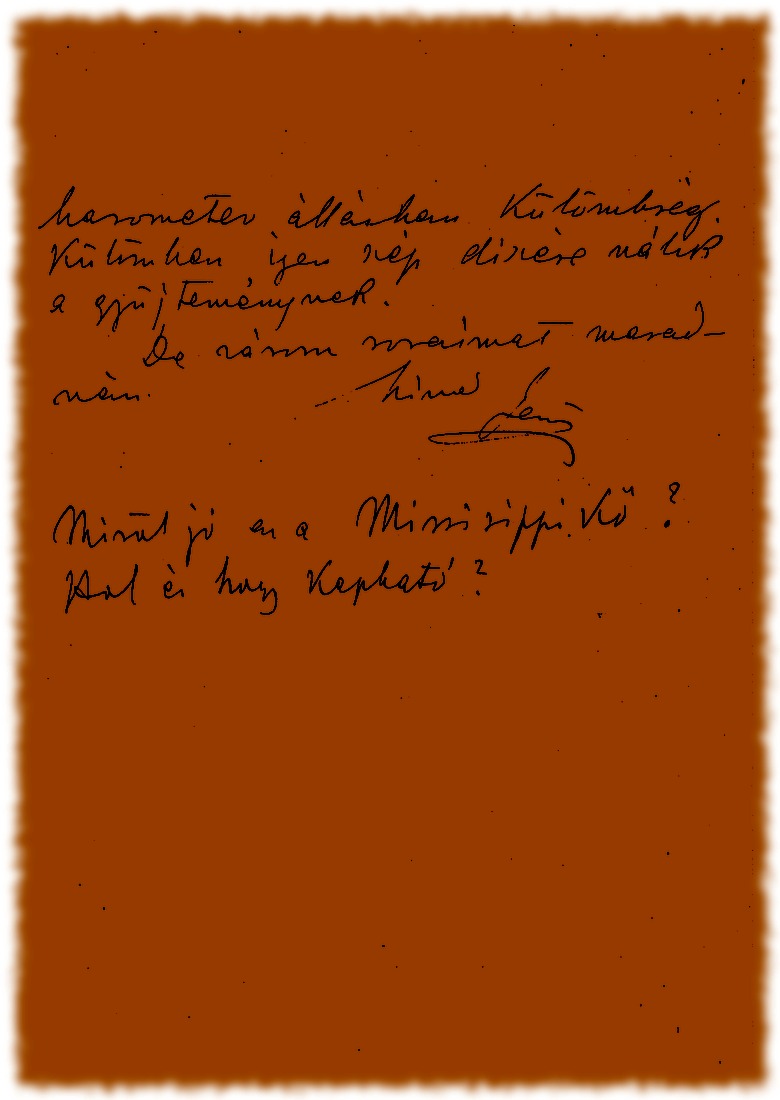 barometer állásban Külömbség.
Külömben igen szép díszére válik
a gyűjteménynek.
De zárom soraimat marad-
ván. híved Jenő
Miről jő en a Mississippi Kő?
Hol és hogy Kapható?